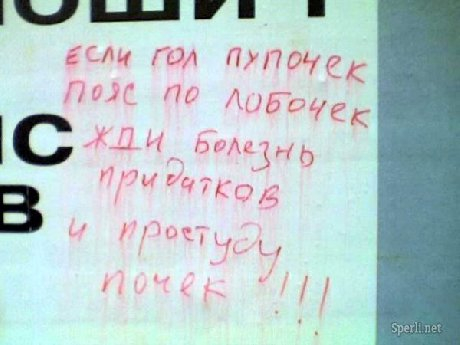 ЕСЛИ ГОЛ ПУПОЧЕК
ПОЯС ПО ЛОБОЧЕК
ЖДИ БОЛЕЗНЬ
ПРИДАТКОВ
И ПРОСТУДУ
ПОЧЕК !!!
ИС
В
Sperli.net